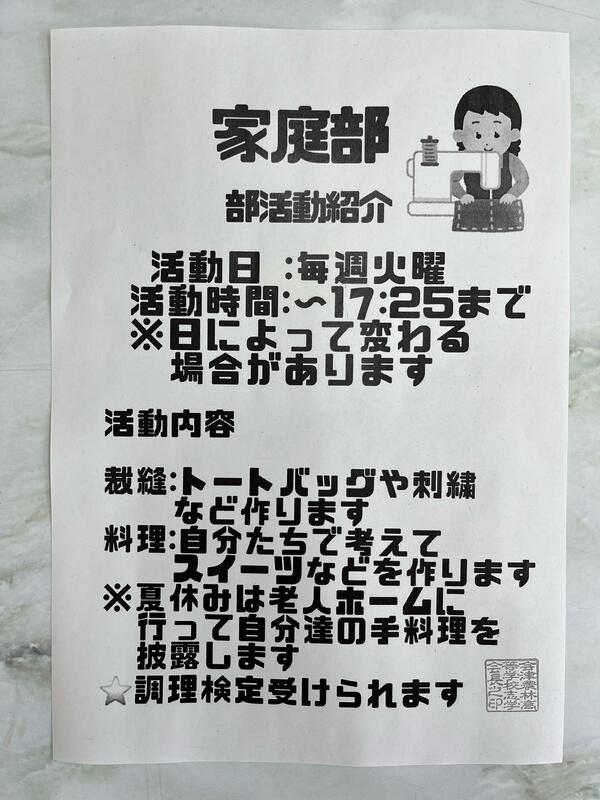 家庭部
部活動紹介
活動日 :毎週火曜
活動時間:~17:25まで
※日によって変わる
場合があります
活動内容
裁縫:トートバッグや刺繍
など作ります
料理:自分たちで考えて
スイーツなどを作ります
※夏休みは老人ホームに
行って自分達の手料理を
披露します
調理検定受けられます